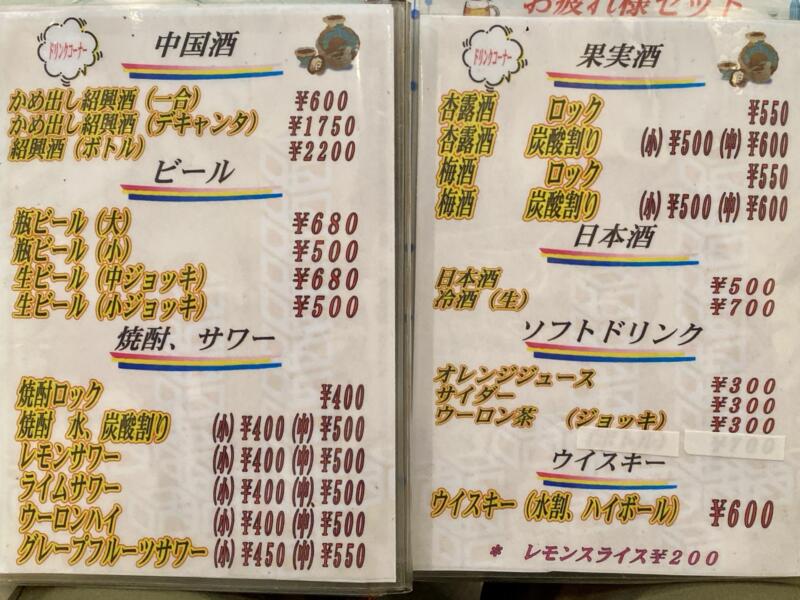 ドリンクコーナー
中国酒
かめ出し紹興酒（一合） ¥600
かめ出し紹興酒（デキャンタ） ¥1750
紹興酒（ボトル） ¥2200
ビール
瓶ビール（大） ¥680
瓶ビール（小） ¥500
生ビール（中ジョッキ） ¥680
生ビール（小ジョッキ） ¥500
焼酎、サワー
焼酎ロック ¥400
焼酎 水、炭酸割り (小)¥400(中)¥500
レモンサワー (小)¥400(中)¥500
ライムサワー (小)¥400(中)¥500
ウーロンハイ (小)¥400(中)¥500
グレープフルーツサワー (小)¥450(中)¥550
お疲れ様セット
ドリンクコーナー
果実酒
杏露酒 ロック ¥550
杏露酒 炭酸割り (小)¥500(中)¥600
梅酒 ロック ¥550
梅酒 炭酸割り (小)¥500(中)¥600
日本酒
日本酒 ¥500
冷酒（生） ¥700
ソフトドリンク
オレンジジュース ¥300
サイダー ¥300
ウーロン茶 （ジョッキ） ¥300
ウイスキー
ウイスキー（水割、ハイボール） ¥600
* レモンスライス¥200